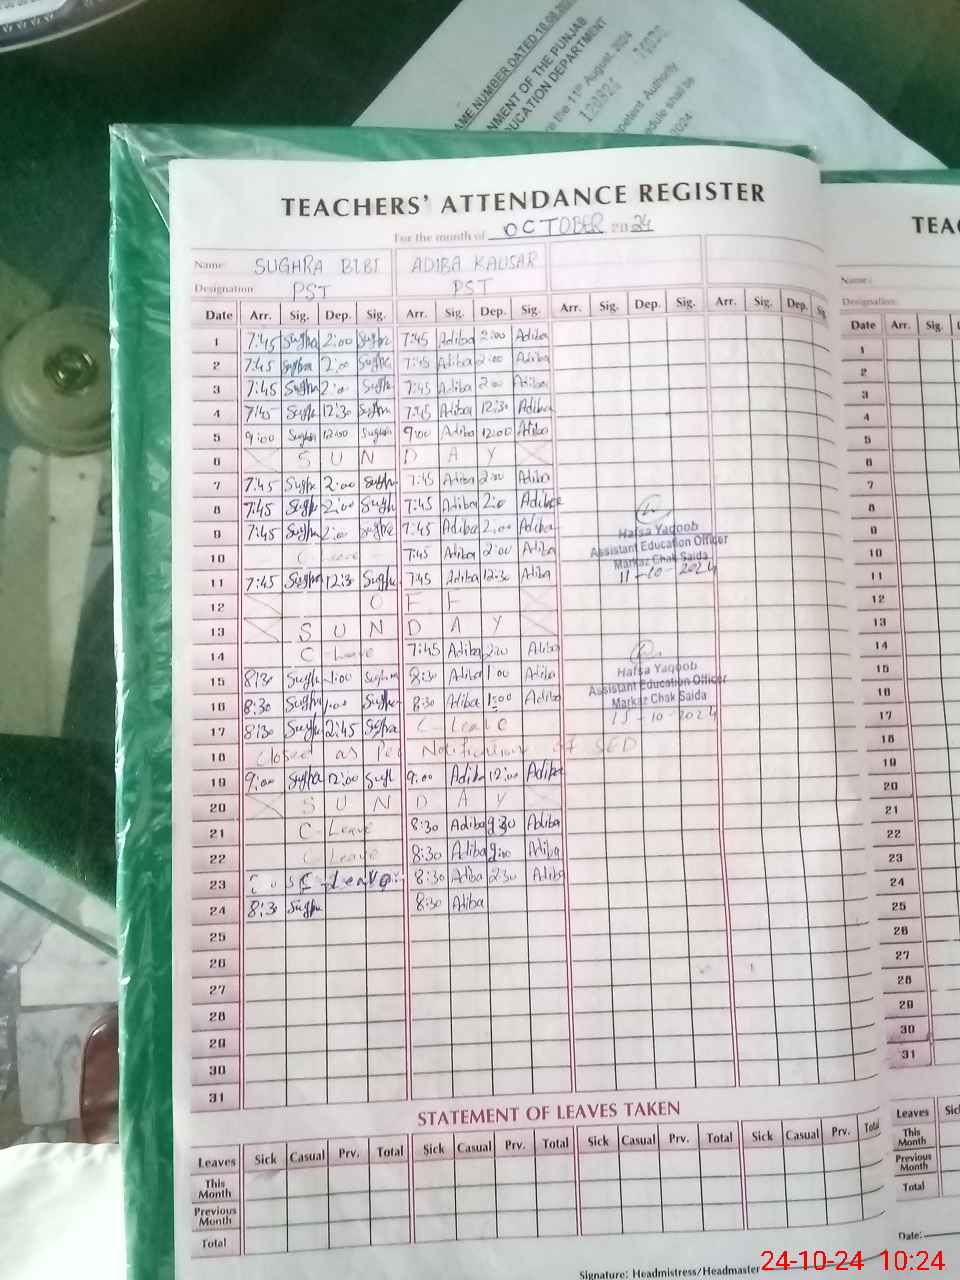 AME NUMBER DATED 10.08.202
NMENT OF THE PUNJAB
UCATION DEPARTMENT
re the 11th August, 2024
petent Authority
edule shall be
2024
TEACHERS' ATTENDANCE REGISTER
For the month of OCTOBER 2024
TEA
Name: SUGHRA BIBI ADIBA KAUSAR
Name:
Designation PST PST
Designation:
Date Arr. Sig. Dep. Sig. Arr. Sig. Dep. Sig. Arr. Sig. Dep. Sig. Arr. Sig. Dep. Sig
Date Arr. Sig.
1 7:45 Sughra 2:00 Sughra 7:45 Adiba 2:00 Adiba
2 7:45 Sughra 2:00 Sughra 7:45 Adiba 2:00 Adiba
3 7:45 Sughra 2:00 Sughra 7:45 Adiba 2:00 Adiba
4 7:40 Sughra 12:30 Sughra 7:45 Adiba 12:30 Adiba
5 9:00 Sughra 12:00 Sughra 9:00 Adiba 12:00 Adiba
6 S U N D A Y
7 7:45 Sughra 2:00 Sughra 7:45 Adiba 2:00 Adiba
8 7:45 Sughra 2:00 Sughra 7:45 Adiba 2:0 Adiba
9 7:45 Sughra 2:00 Sughra 7:45 Adiba 2:00 Adiba
10 C Leave 7:45 Adiba 2:00 Adiba
11 7:45 Sughra 12:30 Sughra 7:45 Adiba 12:30 Adiba
Hafsa Yaqoob
Assistant Education Officer
Markaz Chak Saida
11-10-2024
12 O F F
13 S U N D A Y
14 C Leave 7:45 Adiba 2:00 Adiba
15 8:30 Sughra 1:00 Sughra 8:30 Adiba 1:00 Adiba
16 8:30 Sughra 1:00 Sughra 8:30 Adiba 1:00 Adiba
Hafsa Yaqoob
Assistant Education Officer
Markaz Chak Saida
15-10-2024
17 8:30 Sughra 2:45 Sughra C-Leave
18 Closed as Per Notification of SED
19 9:00 Sughra 12:00 Sughra 9:00 Adiba 12:00 Adiba
20 S U N D A Y
21 C-Leave 8:30 Adiba Adiba
22 C Leave 8:30 Adiba Adiba
23 C-Leave 8:30 Adiba 2:30 Adiba
24 8:30 Sughra 8:30 Adiba
25
26
27
28
29
30
31
1
2
3
4
5
6
7
8
9
10
11
12
13
14
15
16
17
18
19
20
21
22
23
24
25
26
27
28
29
30
31
STATEMENT OF LEAVES TAKEN
Leaves Sick Casual Prv. Total Sick Casual Prv. Total Sick Casual Prv. Total Sick Casual Prv. Total
This Month
Previous Month
Total
Leaves Sick
This Month
Previous Month
Total
Date:
Signature: Headmistress/Headmaster
24-10-24 10:24